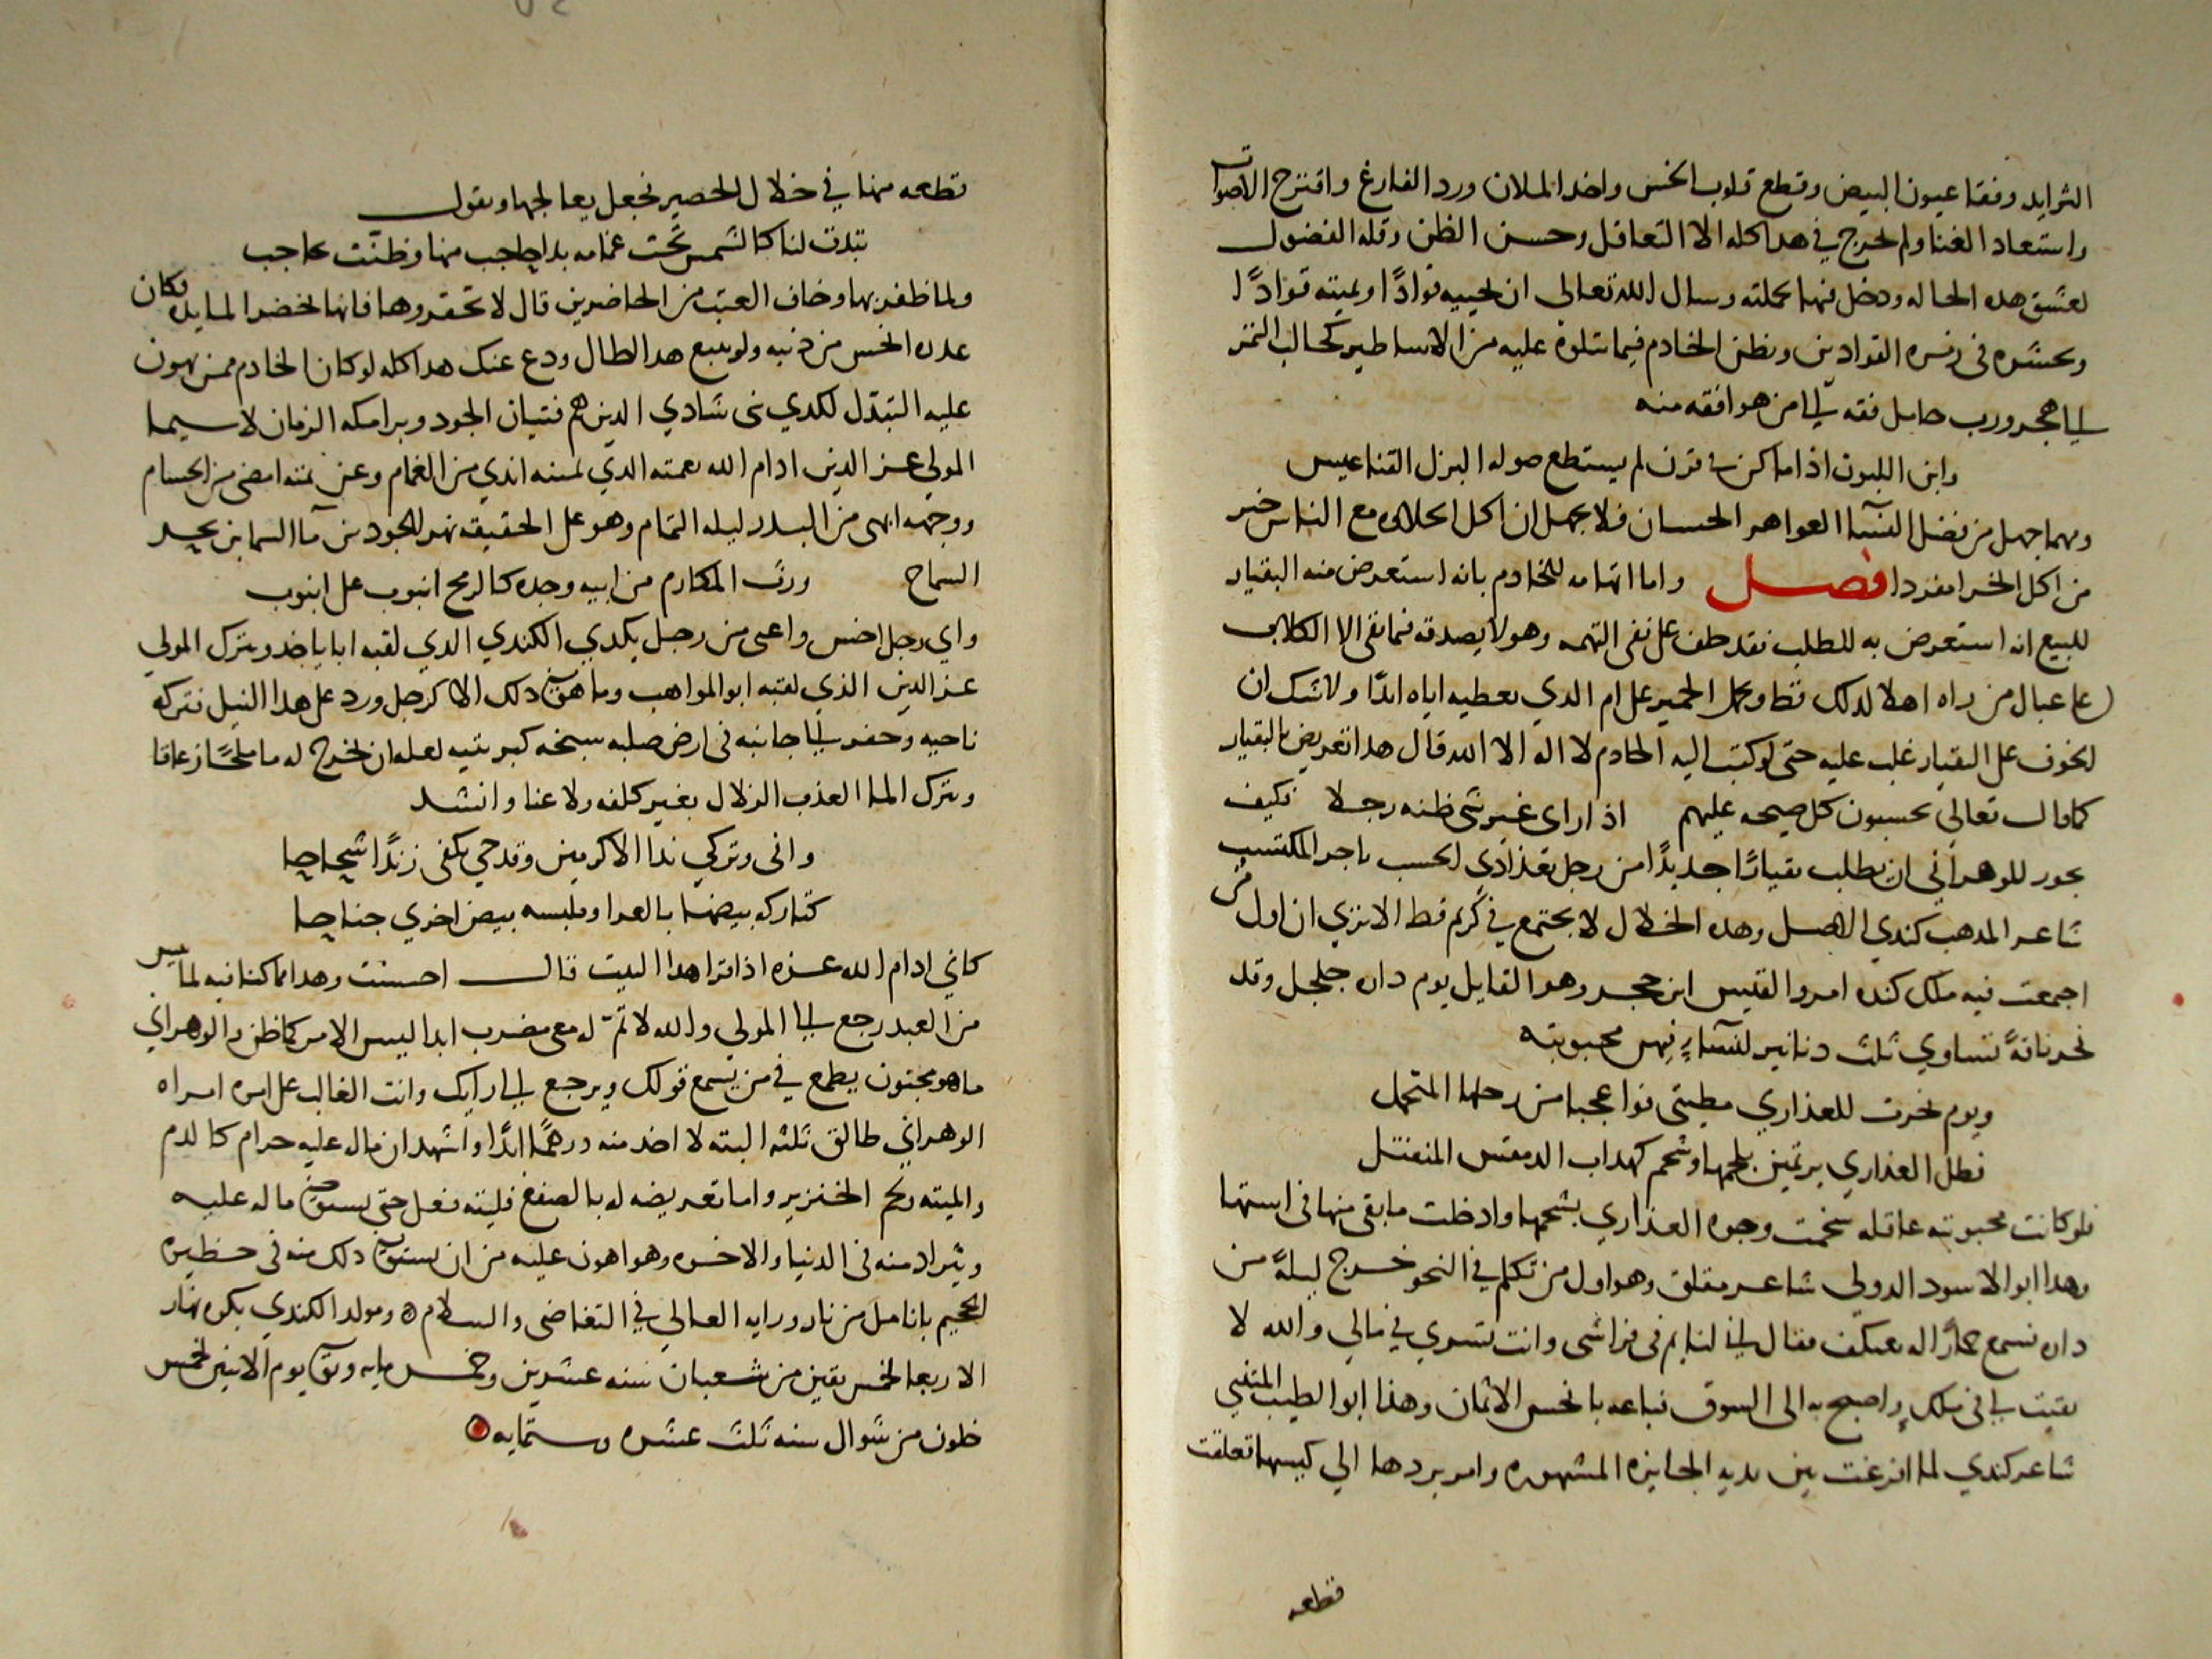 الثرايد وفقا عيون البيض وقطع قلوب الخس واخد الملان ورد الفارغ واقترح الاصوات
واستعاد الغنا ولم الحرج في هدا كله الا التغافل وحسن الظن وقله الفضول
لعشق هده الحاله ودخل فيها بجملته وسال الله تعالى ان يحييه قوادًا ويميته قوادًا
ويحشره في زمره القوادين ويظن الخادم فيما تتلوه عليه من الاساطير كجالب التمر
الى هجر ورب حامل فقه الى من هو افقه منه
وابن اللبون اذا ما لز في قرن لم يستطع صوله البزل القناعيس
ومهما جهل من فضل النسآ العواهر الحسان فلا يجهل ان اكل الحلاوه مع الناس خير
من اكل الخرا مفردا فصل واما اتهامه للخادم بانه استعرض منه البقيار
للبيع انه استعرض به للطلب فقد حلف على نفى التهمه وهو لا يصدقه فما بقى الا الكلاب
على عيال من راه اهلا لدلك قط ويحمل الحمير على ام الدي يعطيه اياه ابدًا ولا شك ان
الخوف على البقيار غلب عليه حتى لو كتب اليه الخادم لا اله الا الله قال هدا تعريض بالبقيار
كما قال تعالى يحسبون كل صيحه عليهم اذا راى غير شى ظنه رجلا فكيف
يجوز للوهراني ان يطلب بقيارًا جديدًا من رجل بغدادى الحسب تاجر المكتسب
شاعر المدهب كندي الاصل وهده الخلال لا يجتمع في كريم قط الا تري ان اول من
اجمعت فيه ملك كنده امرو القيس ابن حجر وهو القايل يوم داره جلجل وقد
نحر ناقةً تساوي ثلث دنانير لنسآءٍ فيهن محبوبته
ويوم نحرت للعذاري مطيتى فوا عجبا من رحلها المتحمل
فظل العذاري يرتمين بلحمها وشحم كهداب الدمقس المفتل
فلو كانت محبوبته عاقله سخمت وجوه العذاري بشحمها وادخلت ما بقى منها في استها
وهدا ابو الاسود الدولي شاعر مفلق وهو اول من تكلم في النحو خرج ليلةً من
داره فسمع حمارًا له يعتلف فقال انى لنايم في فراشى وانت تسري في مالي والله لا
بقيت لي في ملكٍ واصبح به الى السوق فباعه بانحس الاثمان وهذا ابو الطيب المتنبي
شاعر كندي لما افرغت بين يديه الجايزه المشهوره وامر بردها الي كيسها تعلقت
قطعه
قطعه منها في خلال الحصير فجعل يعالجها ويقول
تبدت لنا كالشمس تحت غمامه بدا حاجب منها وظنّت بحاجب
ولما ظفر بها وخاف العتب من الحاضرين قال لا تحقروها فانها تحضر المايده فكان
عدره اخس من ذنبه ولو تتبع هدا لطال ودع عنك هدا كله لو كان الخادم ممن يهون
عليه التبذل لكدي بني شادي الدين هم فتيان الجود وبرامكه الزمان لا سيما
المولي عز الدين ادام الله نعمته الدي يمينه اندي من الغمام وعزيمته امضى من الحسام
ووجهه ابهى من البدر ليله التمام وهو على الحقيقه نهر الجود بن مآ السما بن بحر
السماح ورث المكارم من ابيه وجده كالرمح انبوب على انبوب
واي رجل اخس واعمى من رجل يكدي الكندي الدي لقبه ابا ياخد ويترك المولي
عز الدين الذي لقبه ابو المواهب وما هو في دلك الا كرجل ورد على هدا النيل فتركه
ناحيه وحفر الى جانبه في ارض صلبه سبخه كبريتيه لعله ان يخرج له ما ملحًا زعاقا
ويترك الما العذب الزلال بغير كلفه ولا عنا وانشد
وانى وتركي ندا الاكرمين وقدحي بكفى زندًا شحاحا
كتاركه بيضها بالعرا وملبسه بيض اخري جناحا
كاني ادام الله عزه اذا قرا هدا البيت قال احسنت وهدا مما كنا فيه لما ييس
من العبد رجع الى المولي والله لا تم له معى مضرب ابدا ليس الامر كما ظن والوهراني
ما هو مجنون يطمع في من يسمع قولك ويرجع الى رايك وانت الغالب على امره امراه
الوهراني طالق ثلثه البته لا اخد منه درهمًا ابدًا واشهد ان ماله عليه حرام كالدم
والميته ولحم الخنزير واما تعريضه له بالصفع فليته فعل حتى يستوفي ما له عليه
ويزاد منه في الدنيا والاخره وهو اهون عليه من ان يستوفي دلك منه في حظيره
الجحيم بانامل من نار ورايه العالي في التغاضى والسلام ه ومولد الكندي بكره نهار
الاربعا لخمس بقين من شعبان سنه عشرين وخمس مايه وتوفي يوم الاثنين لخمس
خلون من شوال سنه ثلث عشره وستمايه